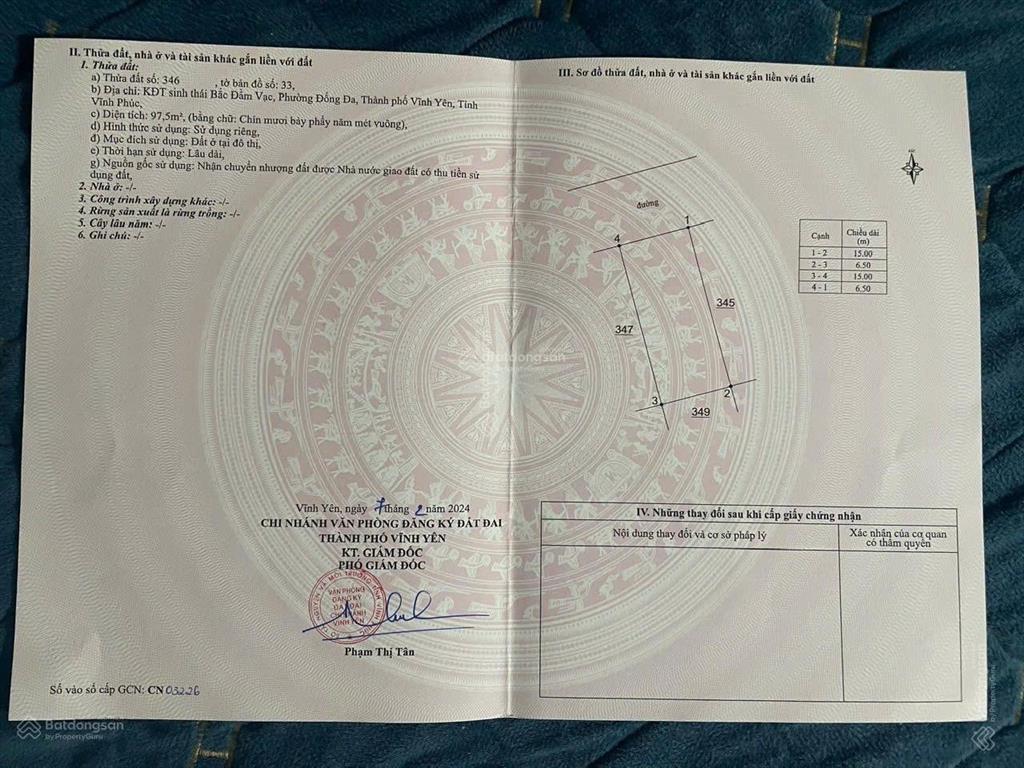 II. Thửa đất, nhà ở và tài sản khác gắn liền với đất
1. Thửa đất:
a) Thửa đất số: 346 , tờ bản đồ số: 33,
b) Địa chỉ: KĐT sinh thái Bắc Đầm Vạc, Phường Đống Đa, Thành phố Vĩnh Yên, Tỉnh
Vĩnh Phúc,
c) Diện tích: 97,5m², (bằng chữ: Chín mươi bảy phẩy năm mét vuông),
d) Hình thức sử dụng: Sử dụng riêng,
đ) Mục đích sử dụng: Đất ở tại đô thị,
e) Thời hạn sử dụng: Lâu dài,
g) Nguồn gốc sử dụng: Nhận chuyển nhượng đất được Nhà nước giao đất có thu tiền sử
dụng đất,
2. Nhà ở: -/-
3. Công trình xây dựng khác: -/-
4. Rừng sản xuất là rừng trồng: -/-
5. Cây lâu năm: -/-
6. Ghi chú: -/-
Vĩnh Yên, ngày 7 tháng 2 năm 2024
CHI NHÁNH VĂN PHÒNG ĐĂNG KÝ ĐẤT ĐAI
THÀNH PHỐ VĨNH YÊN
KT. GIÁM ĐỐC
PHÓ GIÁM ĐỐC
VĂN PHÒNG
ĐĂNG KÝ
ĐẤT ĐAI
CHI NHÁNH
VĨNH YÊN
Phạm Thị Tân
Số vào sổ cấp GCN: CN 03226
III. Sơ đồ thửa đất, nhà ở và tài sản khác gắn liền với đất
đường
4 1
345
347
3 2
349
Cạnh Chiều dài
(m)
1 - 2 15.00
2 - 3 6.50
3 - 4 15.00
4 - 1 6.50
IV. Những thay đổi sau khi cấp giấy chứng nhận
Nội dung thay đổi và cơ sở pháp lý Xác nhận của cơ quan
có thẩm quyền
Batdongsan
Batdongsan
by PropertyGuru